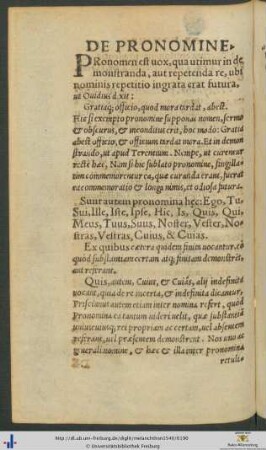 DE PRONOMINE.
PRonomen est uox, qua utimur in de
monstranda, aut repetenda re, ubi
nominis repetitio ingrata erat futura.
ut Ouidius dixit:
Grataq; officio, quod mora tardat, abest.
Hic si exempto pronomine supponas nomen, sermo
& obscurus, & inconditus erit, hoc modo: Gratia
abest officio, & officium tardat mora. Et in demon
strando, ut apud Terentium. Nempe, ut curentur
recte hæc. Nam si hic sublato pronomine, singilla-
tim commemorentur ea, quæ curanda erant, fuerat
ea commemoratio & longa nimis, et odiosa futura.
Sunt autem pronomina hęc: Ego, Tu,
Sui, Ille, Iste, Ipse, Hic, Is, Quis, Qui,
Meus, Tuus, Suus, Noster, Vester, No-
stras, Vestras, Cuius, & Cuias.
Ex quibus cætera quidem finita uocantur, eo
quod substantiam certam atq; finitam demonstrent,
aut referant.
Quis, autem, Cuius, & Cuias, alij indefinita
uocant, quia de re incerta, & indefinita dicantur.
Priscianus autem etiam inter nomina refert, quod
pronomina ea tantum uideri uelit, quæ substantiã
rei propriam ac certam, uel absentem
referant, uel præsentem demonstrent. Nos uno ac
generali nomine, & hæc & illa inter pronomina
retuli-
http://dl.ub.uni-freiburg.de/diglit/melanchthon1540/0190
© Universitätsbibliothek Freiburg
Baden-Württemberg